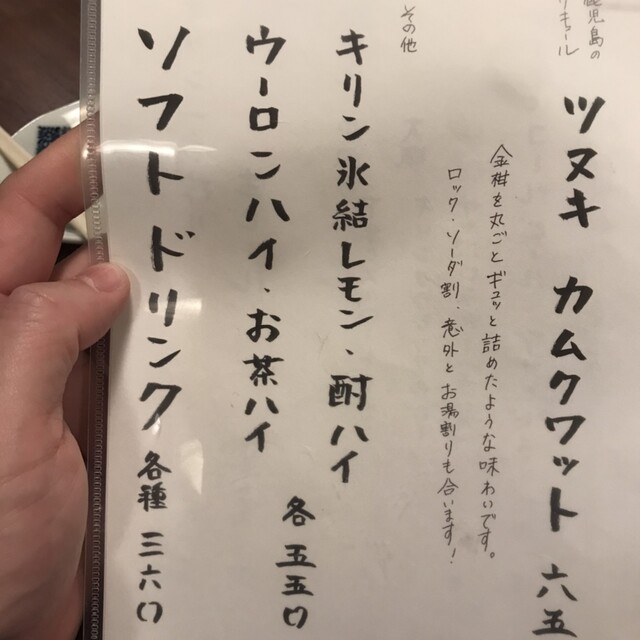 鹿児島の
リキュール
ツヌキ カムクワット 六五
金柑を丸ごとギュッと詰めたような味わいです。
ロック・ソーダ割、意外とお湯割りも合います!
その他
キリン氷結レモン、酎ハイ
ウーロンハイ、お茶ハイ
各 五五〇
ソフトドリンク 各種 三六〇